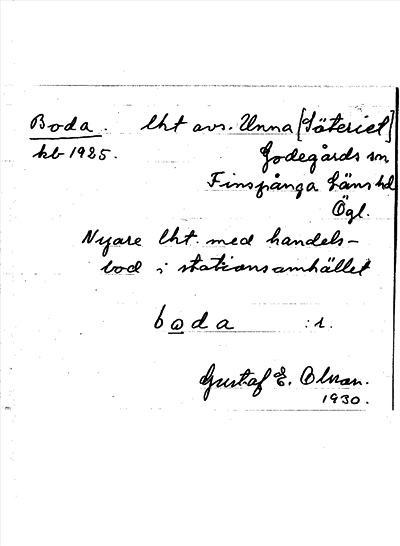 Boda. lht avs. Unna [Säteriet]
kb 1925. Godegårds sn
Finspånga läns hd
Ögl.
Nyare lht. med handels-
bod i stationssamhället
boda :r.
Gustaf E. Olson.
1930.